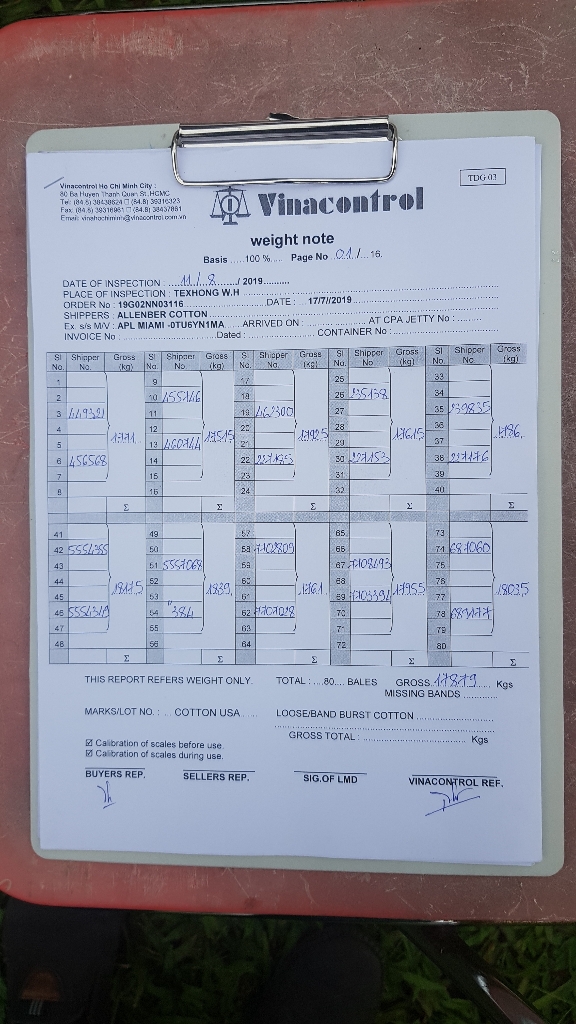 Vinacontrol Ho Chi Minh City :
80 Ba Huyen Thanh Quan St. HCMC
Tel: (84.8) 39439624 □ (84.8) 39316323
Fax: (84.8) 39316961 □ (84.8) 38437861
Email: vinahochiminh@vinacontrol.com.vn
Vinacontrol
TDG 03
weight note
Basis .....100 %..... Page No ..01./...16.
DATE OF INSPECTION : ....11../..8....../ 2019..........
PLACE OF INSPECTION : TEXHONG W.H
ORDER No : 19G02NN03116 DATE : 17/7//2019
SHIPPERS : ALLENBER COTTON
Ex. s/s M/V : APL MIAMI -0TU6YN1MA ARRIVED ON : AT CPA JETTY No :
INVOICE No : Dated : CONTAINER No :
Sl No. Shipper No. Gross (kg) Sl No. Shipper No. Gross (kg) Sl No. Shipper No. Gross (kg) Sl No. Shipper No. Gross (kg) Sl No. Shipper No. Gross (kg)
1 9 17 25 33
2 10 455146 18 26 235138 34
3 449321 11 19 462300 27 35 239835
4 12 20 28 36
1771 1751.5 1792.5 1761.5 1786
5 13 460744 21 29 37
6 456568 14 22 30 227153 38 227176
7 15 23 31 39
8 16 24 32 40
Σ Σ Σ Σ Σ
41 49 57 65 73
42 50 58 7102809 66 74 687060
43 51 5557068 59 67 7108493 75
44 52 60 68 76
1817.5 1839 1761 1795.5 1803.5
45 53 61 69 7103394 77
46 54 "384 62 7707028 70 78 683177
47 55 63 71 79
48 56 64 72 80
Σ Σ Σ Σ Σ
THIS REPORT REFERS WEIGHT ONLY. TOTAL : ....80.... BALES GROSS 17879 Kgs
MISSING BANDS
MARKS/LOT NO. : ... COTTON USA..... LOOSE/BAND BURST COTTON
GROSS TOTAL : Kgs
☑ Calibration of scales before use.
☑ Calibration of scales during use.
BUYERS REP. SELLERS REP. SIG.OF LMD VINACONTROL REF.